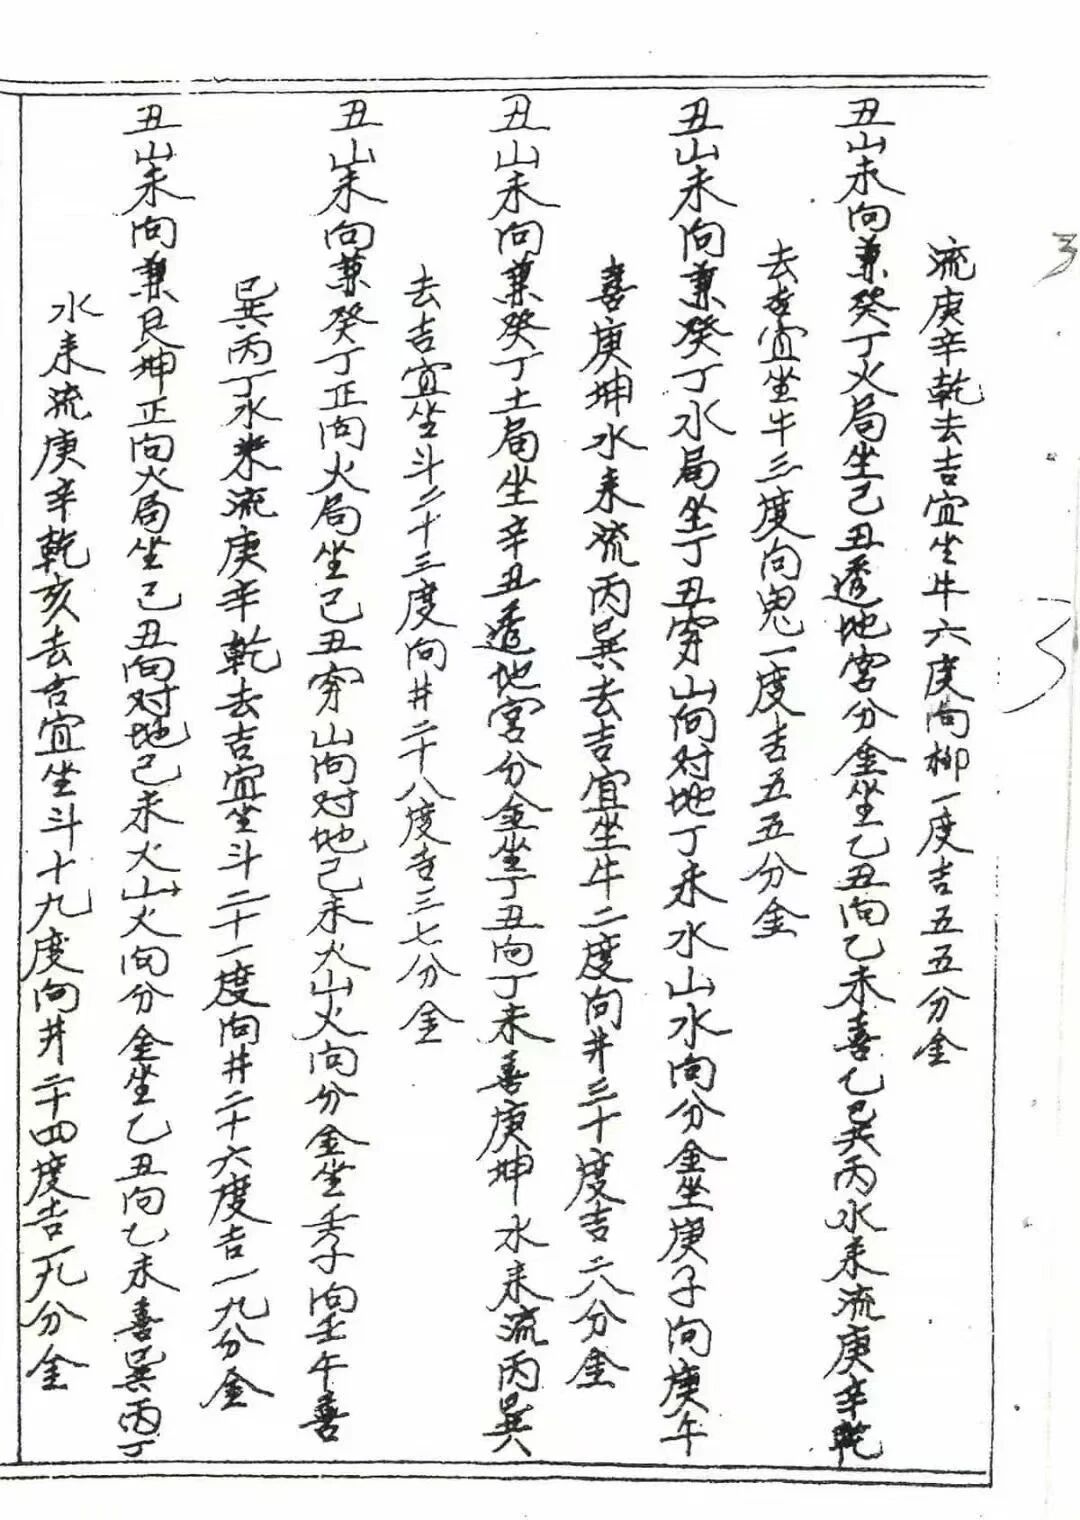 流庚辛乾去吉宜坐牛六度向柳一度吉五五分金
丑山未向兼癸丁火局坐己丑透地宫分金坐乙丑向乙未喜乙巳巽丙水来流庚辛乾
去吉宜坐牛三度向鬼一度吉五五分金
丑山未向兼癸丁水局坐丁丑穿山向对地丁未水山水向分金坐庚子向庚午
喜庚坤水来流丙巽去吉宜坐牛二度向井三十度吉二八分金
丑山未向兼癸丁土局坐辛丑透地宫分金坐丁丑向丁未喜庚坤水来流丙巽
去吉宜坐斗二十三度向井二十八度吉三七分金
丑山未向兼癸丁正向火局坐己丑穿山向对地己未火山火向分金坐壬子向壬午喜
巳巽丙丁水来流庚辛乾去吉宜坐斗二十一度向井二十六度吉一九分金
丑山未向兼艮坤正向火局坐己丑向对地己未火山火向分金坐乙丑向乙未喜巽丙丁
水来流庚辛乾亥去吉宜坐斗十九度向井二十四度吉一九分金
3
3